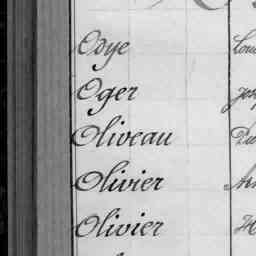 Odye
Oger
Oliveau
Olivier
Olivier